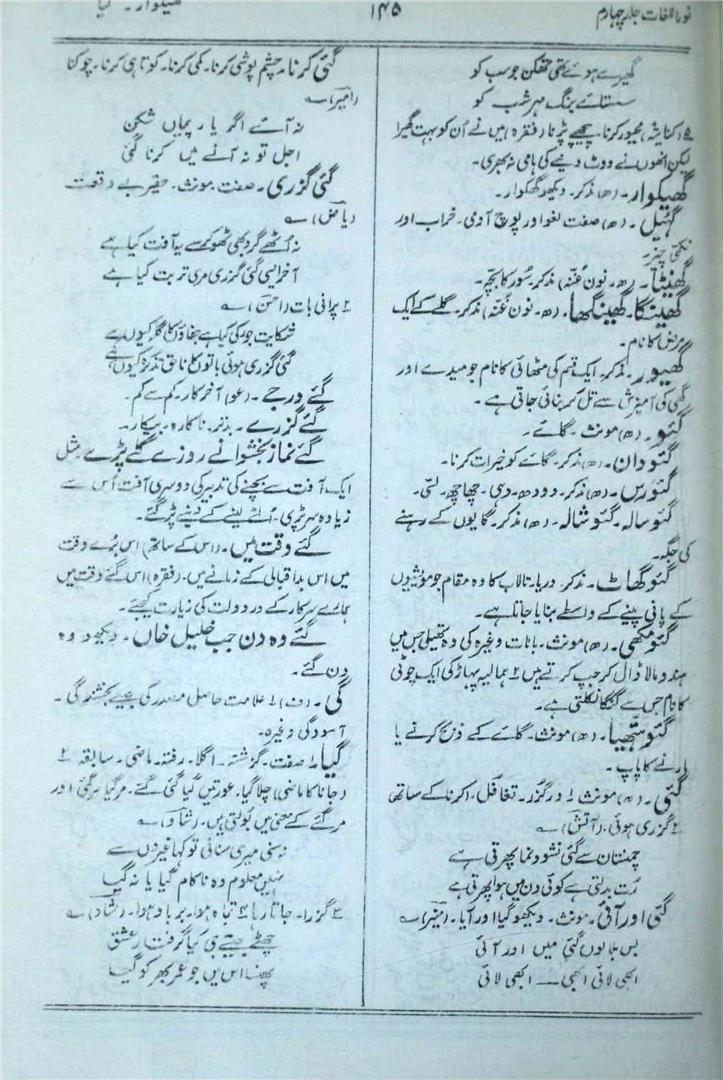 نور اللغات جلد چہارم
۱۴۵
گھیکوار ۔ گیا
گھیرے ہوئے تھی تھکن جو سب کو
سستائے برنگ مہر شب کو
(کنایتہً) مجبور کرنا ۔ پیچھے پڑنا (فقرہ) میں نے اُن کو بہت گھیرا
لیکن انھوں نے ووٹ دینے کی ہامی نہ بھری۔
گھیکوار ۔ (ھ) مذکر ۔ دیکھو گھکوار ۔
گھیل ۔ (ھ) صفت لغو اور پوچ آدمی ۔ خراب اور
نکمّی چیز ۔
گھینٹا ۔ (ھ ۔ نون غنّہ) مذکر سُور کا بچّہ ۔
گھینگا ۔ گھینگھا ۔ (ھ ۔ نون غنّہ) مذکر ۔ گلے کے ایک
مرض کا نام ۔
گھیور ۔ مذکر ۔ ایک قسم کی مٹھائی کا نام جو میدے اور
گھی کی آمیزش سے تل کر بنائی جاتی ہے ۔
گئو ۔ (ھ) مونث ۔ گائے ۔
گئودان ۔ (ھ) مذکر ۔ گائے کو خیرات کرنا ۔
گئورس ۔ (ھ) مذکر ۔ دودھ ۔ دہی ۔ چھاچھ ۔ لسّی ۔
گئوسالہ ۔ گئوشالہ ۔ (ھ) مذکر ۔ گایوں کے رہنے
کی جگہ ۔
گئوگھاٹ ۔ مذکر ۔ دریا ۔ تالاب کا وہ مقام جو مویشیوں
کے پانی پینے کے واسطے بنایا جاتا ہے ۔
گئومکھی ۔ (ھ) مونث ۔ بانات وغیرہ کی وہ تھیلی جس میں
ہندو مالا ڈال کر جپ کرتے ہیں ۲ ہمالیہ پہاڑ کی ایک چوٹی
کا نام جس سے گنگا نکلتی ہے ۔
گئوہتھیا ۔ (ھ) مونث ۔ گائے کے ذبح کرنے یا
مارنے کا پاپ ۔
گئی ۔ (ھ) مونث ۱ درگزر ۔ تغافل ۔ (کرنا کے ساتھ)
۲ گزری ہوئی (آتش) ؎
چمنستان سے گئی نشوونما پھرتی ہے
رُت بدلتی ہے کوئی دن میں ہوا پھرتی ہے
گئی اور آئی ۔ مونث ۔ دیکھو گیا اور آیا ۔ (منیر) ؎
بس بلا توں گئی میں اور آئی
ابھی لائی ابھی — ابھی لائی
گئی کرنا ۔ چشم پوشی کرنا ۔ کمی کرنا ۔ کوتاہی کرنا ۔ چوکنا
(امیر) ؎
نہ آئے اگر یار پیماں شکن
اجل تو نہ آنے میں کرنا گئی
گئی گزری ۔ صفت ۔ مونث ۔ حقیر ۔ بے وقعت
(ریاض) ؎
نہ اُٹھے گرد بھی ٹھوکر سے یہ آفت کیا ہے
آخر ایسی گئی گزری مری تربت کیا ہے
۲ پرانی بات (احسن) ؎
شکایت جو کی کیا ہے جفاؤں کا گلہ کیوں ہے
گئی گزری ہوئی باتوں کا ناحق تذکرہ کیوں ہے
گئے درجے ۔ (عو) آخرکار ۔ کم سے کم ۔
گئے گزرے ۔ بدتر ۔ ناکارہ ۔ بیکار ۔
گئے نماز بخشوانے روزے گلے پڑے ۔ مثل
ایک آفت سے بچنے کی تدبیر کی دوسری آفت اُس سے
زیادہ سر پڑی ۔ اُلٹے لینے کے دینے پڑ گئے ۔
گئے وقت میں ۔ (اس کے ساتھ) اس بُرے وقت
میں اس بداقبالی کے زمانے میں ۔ (فقرہ) اس گئے وقت میں
ہمارے سرکار کے در دولت کی زیارت کیجئے ۔
گئے وہ دن جب خلیل خاں ۔ دیکھو وہ
دن گئے ۔
گی ۔ (ف) ۱ علامت حاصل مصدر کی جیسے بخشندگی ۔
آسودگی وغیرہ ۔
گیا ۱ صفت ۔ گزشتہ ۔ اگلا ۔ رفتہ ۔ ماضی ۔ سابقہ ۲
(جانا کا ماضی) چلا گیا ۔ عورتیں گیا گئی گئے ۔ مر گیا مر گئی اور
مر گئے کے معنی میں بولتی ہیں ۔ (شاد) ؎
نہ سنی میری سنانی تو کہا غیروں سے
نہیں معلوم وہ ناکام گیا یا نہ گیا
۳ گزرا ۔ جاتا رہا ۴ تباہ ہوا ۔ برباد ہوا ۔ (شاد) ؎
چھٹے جیتے جی کیا گرفتار عشق
پھنسا اس میں جو عمر بھر کو گیا